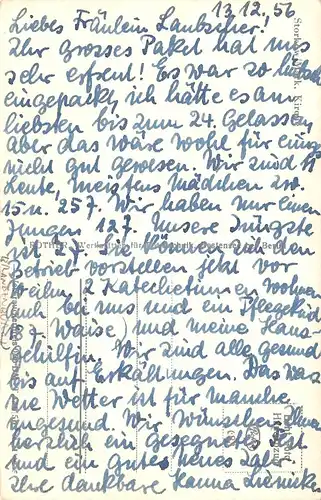 13.12.56
Liebes Fräulein Laubscher!
Ihr grosses Paket hat uns
sehr erfreut! Es war so hübsch
eingepackt, ich hätte es am
liebsten bis zum 24. gelassen,
aber das wäre wohl für einiges
nicht gut gewesen. Wir sind 11
Leute, meistens Mädchen zw.
15 u. 25 J. Wir haben nur einen
Jungen 12 J. Unsere Jüngste
ist 2 J. Sie können sich den
Betrieb vorstellen jetzt vor
Weihn. 2 Katechetinnen wohnen
auch bei uns und ein Pflegekind
Waise) und meine Haus-
gehilfin. Wir sind alle gesund
bis auf Erkältungen. Das
Wetter ist für manche
ungesund. Wir wünschen Ihnen
herzlich ein gesegnetes Fest
und ein gutes neues Jahr
Ihre dankbare Hanna